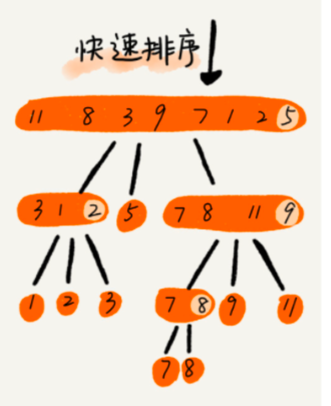 快速排序
11 8 3 9 7 1 2 5
3 1 2 5 7 8 11 9
1 2 3 7 8 9 11
7 8